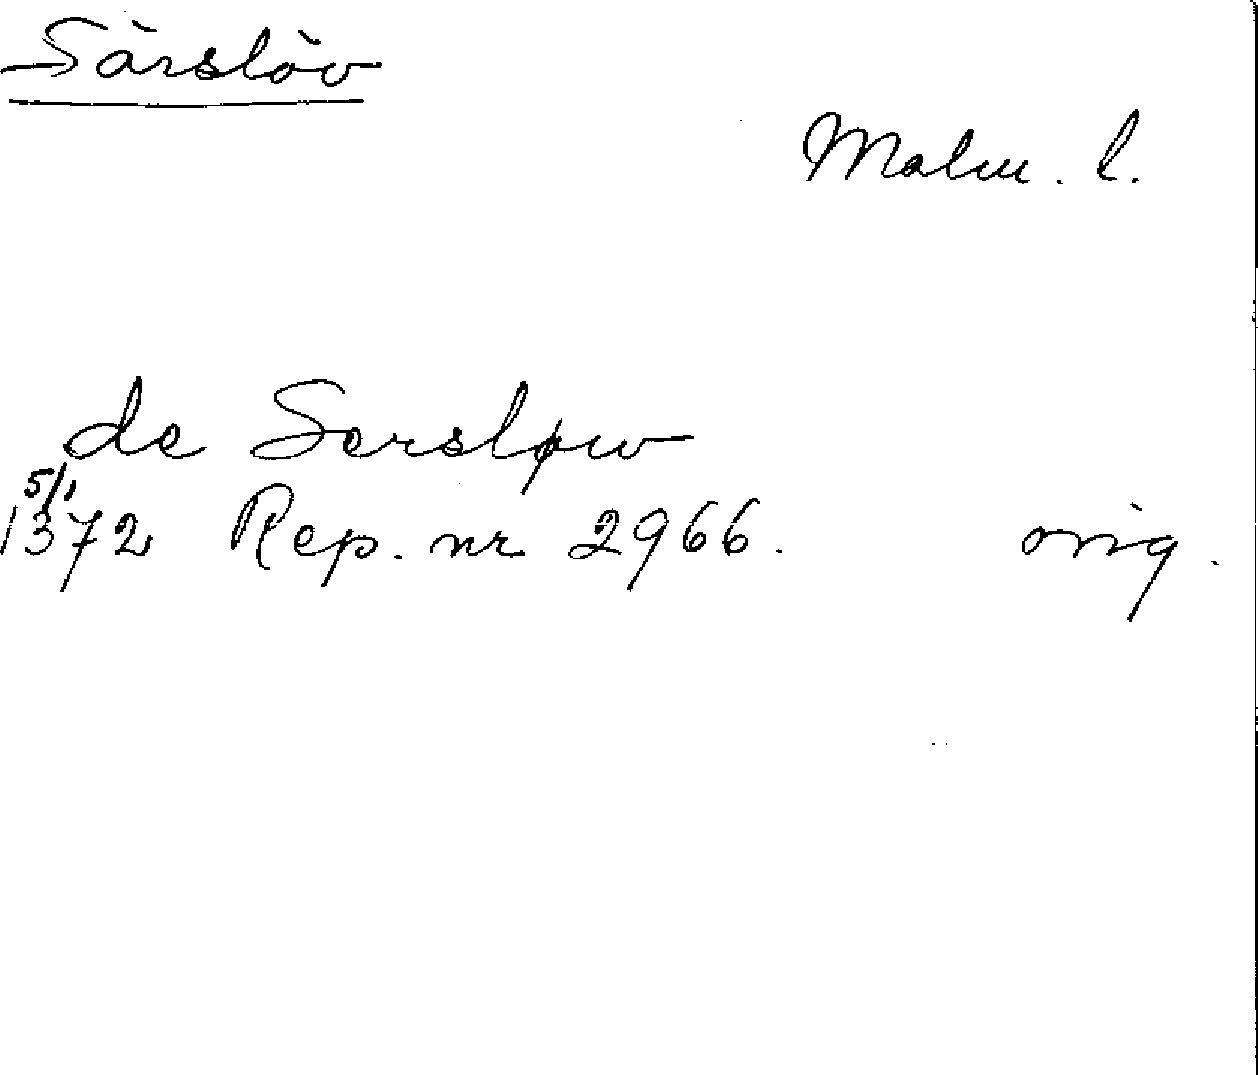 Särslöv
Malm. l.
de Sersløw
5/1
1372 Rep. nr 2966. orig.